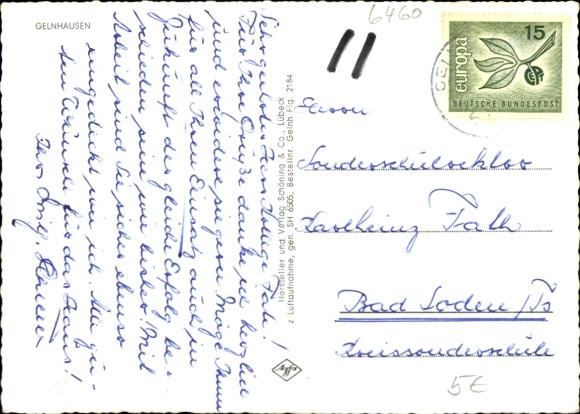 GELNHAUSEN
6460
11
15
europa
DEUTSCHE BUNDESPOST
Sehr geehrter Herr Kollege Fath!
Für Ihre Grüße danke ich herzlich
und erwidere sie gern. Möge Ihnen
für all Ihren Einsatz auch in
Zukunft der gleiche Erfolg be-
schieden sein wie bisher. Mit
Arbeit sind Sie sicher ebenso
eingedeckt wie ich. Mit gu-
ten Wünschen für das Haus!
Ihr
Hersteller und Verlag Schöning & Co., Lübeck
z Luftaufnahme, gen. SH 6505, Bestellnr. Gelnh Fig. 2184
Agfa
Herrn
Sonderschulrektor
Karlheinz Fath
Bad Soden/Ts
Kreissonderschule
5€